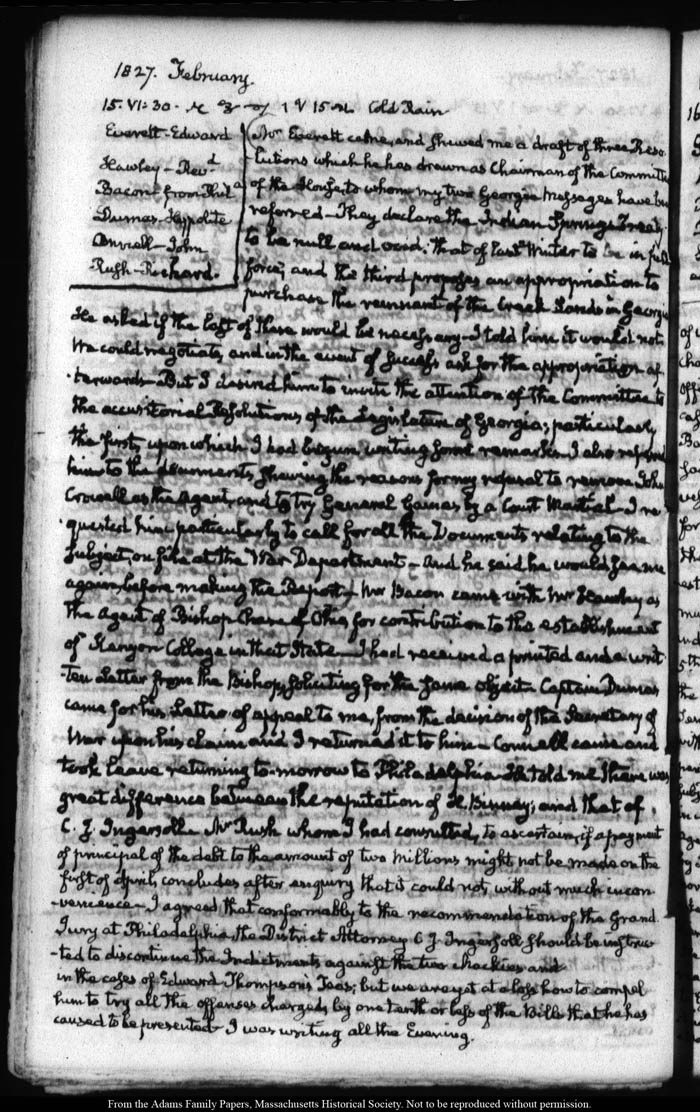 1827. February.
15. VI:30. 1 V 15. Cold Rain
Everett-Edward
Hawley-Revd
Bacon from Phila
Dumas-Hyppolite
Connell-John
Rush-Richard.
Mr Everett came, and shewed me a draft of three Reso-
-lutions which he has drawn as Chairman of the Committee
of the House, to whom my two Georgia Messages have been
referred. They declare the Indian Springs Treaty
to be null and void. That of last Winter to be in full
force; and the third proposes an appropriation to
purchase the remnant of the Creek Lands in Georgia
He asked if the last of these would be necessary. I told him it would not.
We could negotiate, and in the event of success ask for the appropriation af-
terwards. But I desired him to invite the attention of the Committee to
the accusatorial Resolutions of the Legislature of Georgia; particularly
the first, upon which I had begun writing some remarks. I also referred
him to the documents, shewing the reasons for my refusal to remove John
Crowell as the Agent, and to try General Gaines by a Court Martial. I re-
quested him particularly to call for all the Documents relating to the
subject, on file at the War Department. And he said he would see me
again before making the Report. Mr Bacon came with Mr Hawley as
the Agent of Bishop Chase of Ohio, for contribution to the establishment
of Kenyon College in that State. I had received a printed and a writ-
-ten Letter from the Bishop, soliciting for the same object. Captain Dumas
came for his Letter of appeal to me, from the decision of the Secretary of
War upon his claim and I returned it to him. Connell came and
took leave returning to-morrow to Philadelphia. He told me there was
great difference between the reputation of H. Binney, and that of
C. J. Ingersoll. Mr Rush whom I had consulted, to ascertain, if a payment
of principal of the debt to the amount of two Millions might not be made on the
first of April, concludes after enquiry that it could not, without much incon-
-venience. I agreed that conformably to the recommendation of the Grand
Jury at Philadelphia the District Attorney C J. Ingersoll should be instruc-
-ted to discontinue the Indictments against the two and
in the cases of Edward Thompson's Teas; but we are yet at a loss how to compel
him to try all the offenses charged, by one tenth or less of the Bills that he has
caused to be presented. I was writing all the Evening.
From the Adams Family Papers, Massachusetts Historical Society. Not to be reproduced without permission.